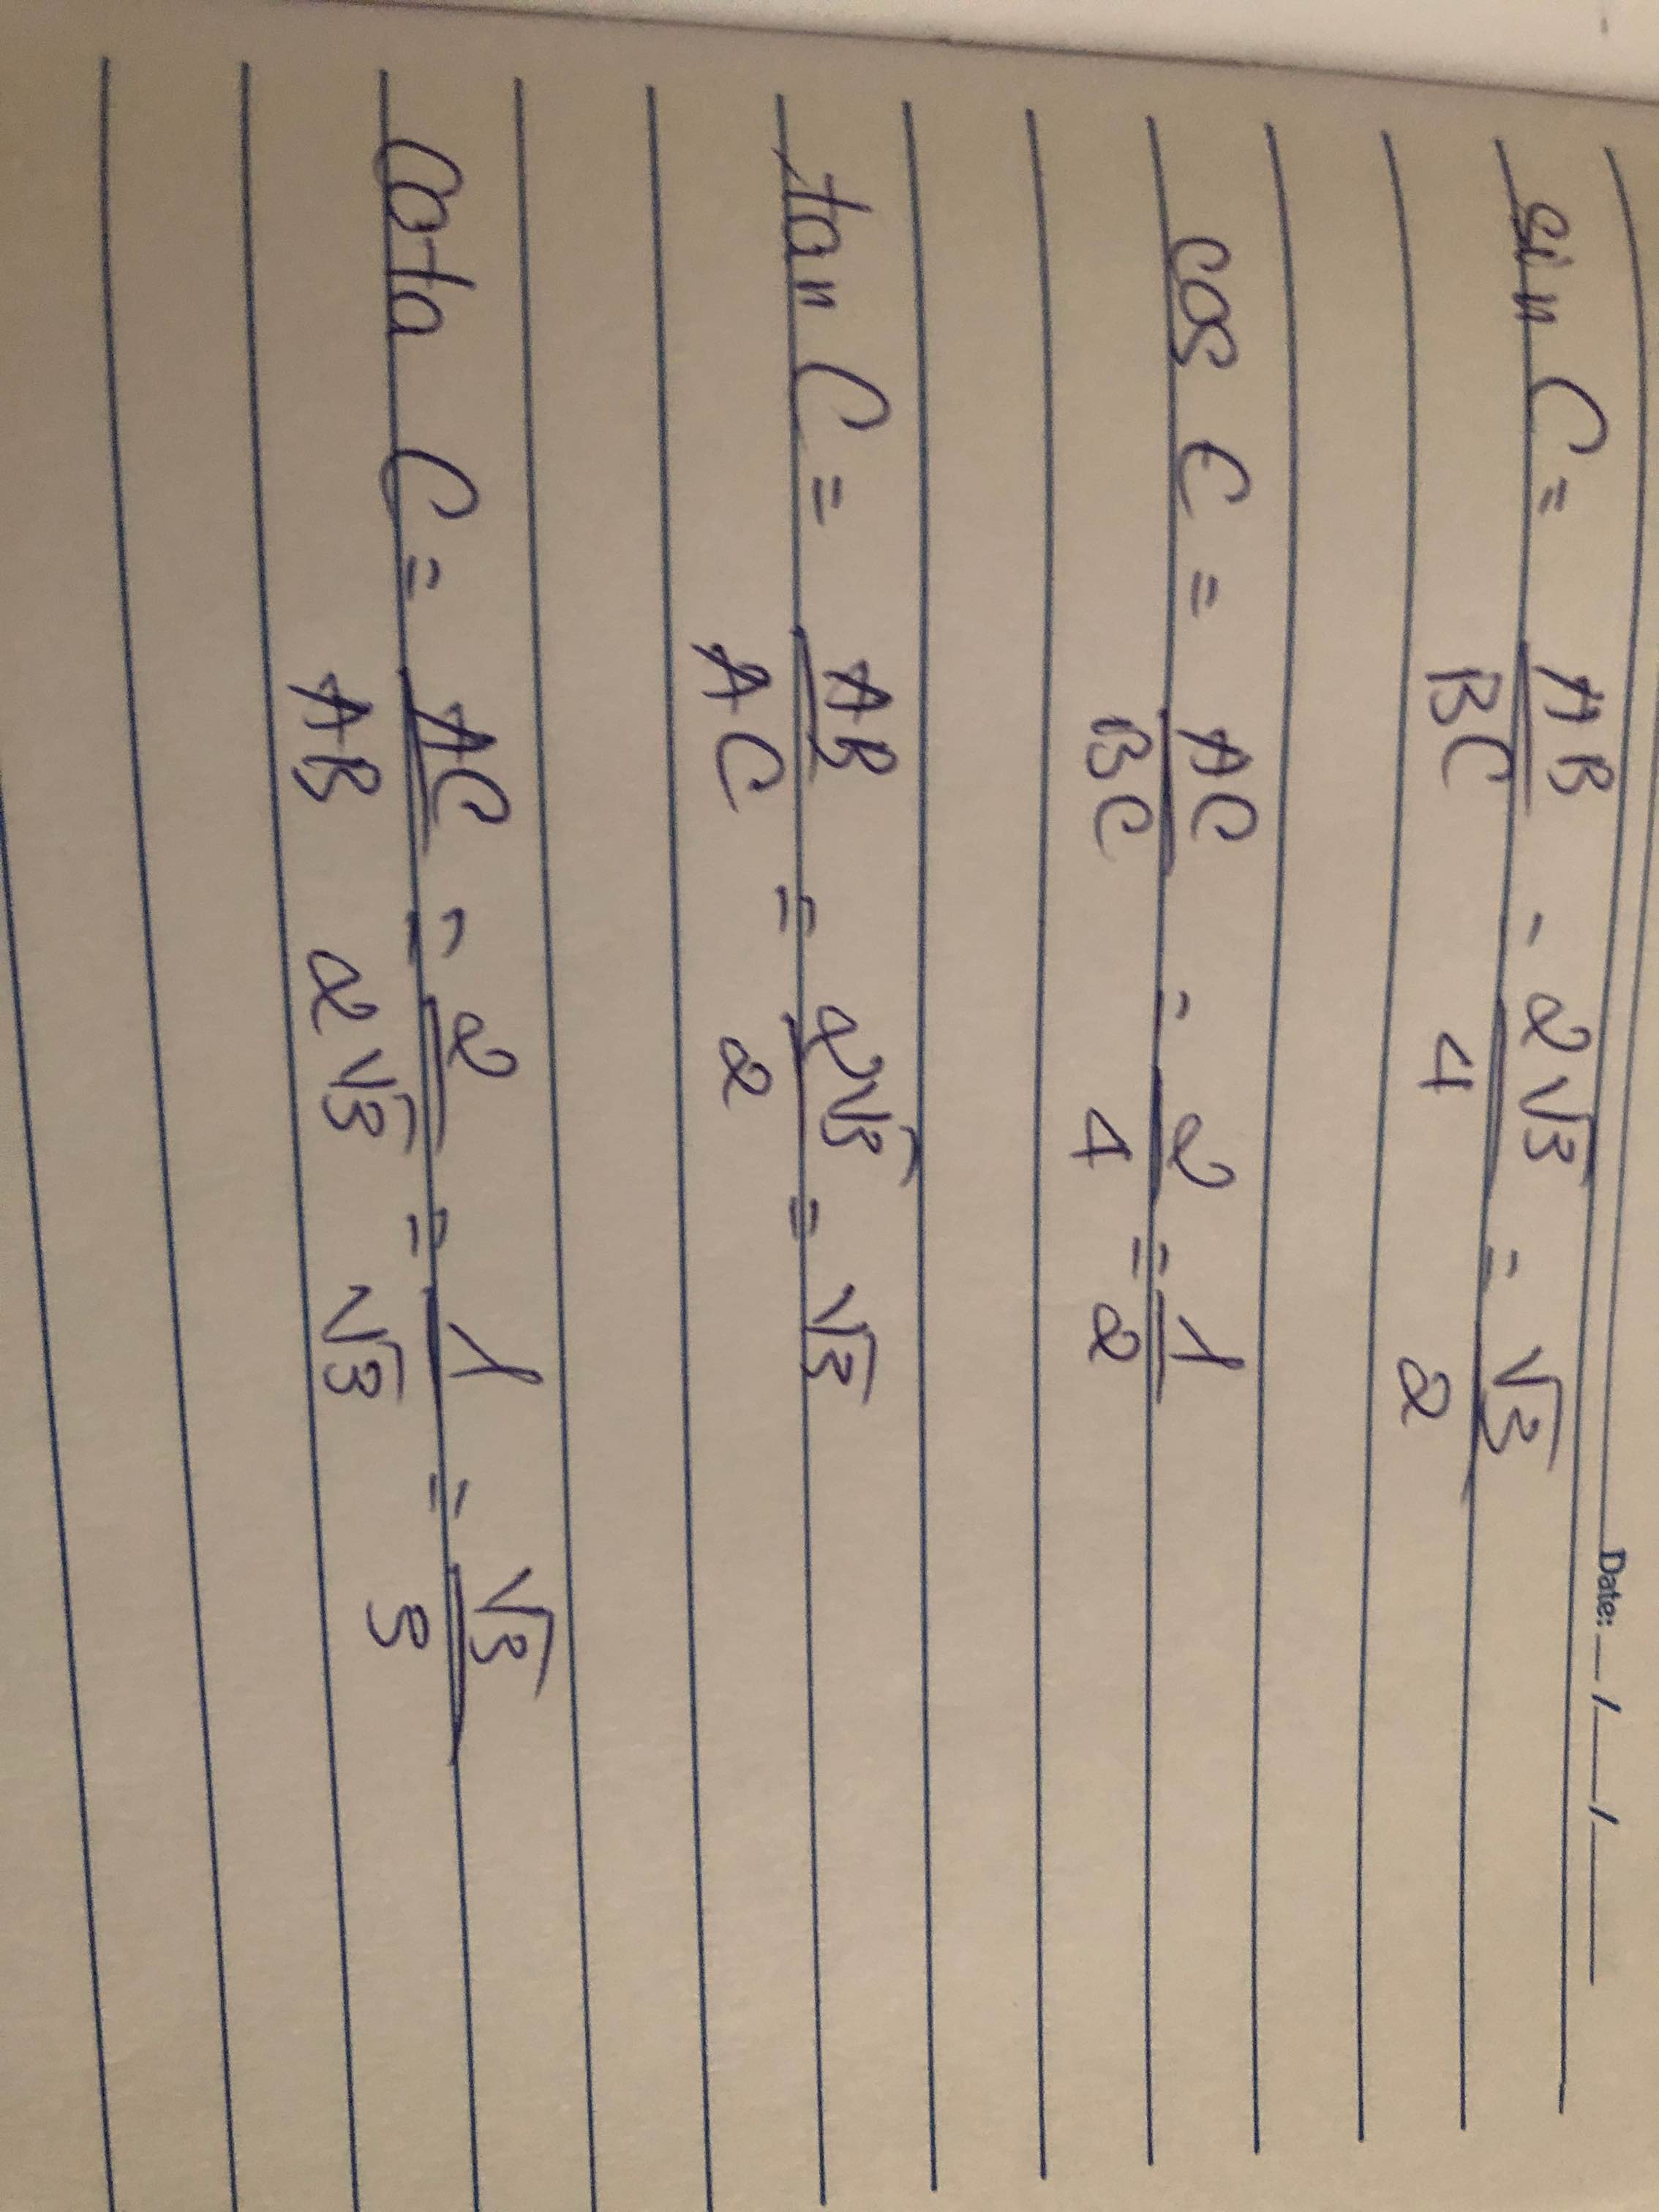 Date: __/__/__
sin C = AB/BC = 2√3/4 = √3/2
cos C = AC/BC = 2/4 = 1/2
tan C = AB/AC = 2√3/2 = √3
cota C = AC/AB = 2/2√3 = 1/√3 = √3/3